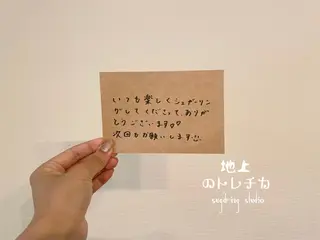 いつも楽しくシュガーリン
グしてくださって、ありが
とうございます♡
次回もお願いします
地上
のトレチカ
sugaring studio